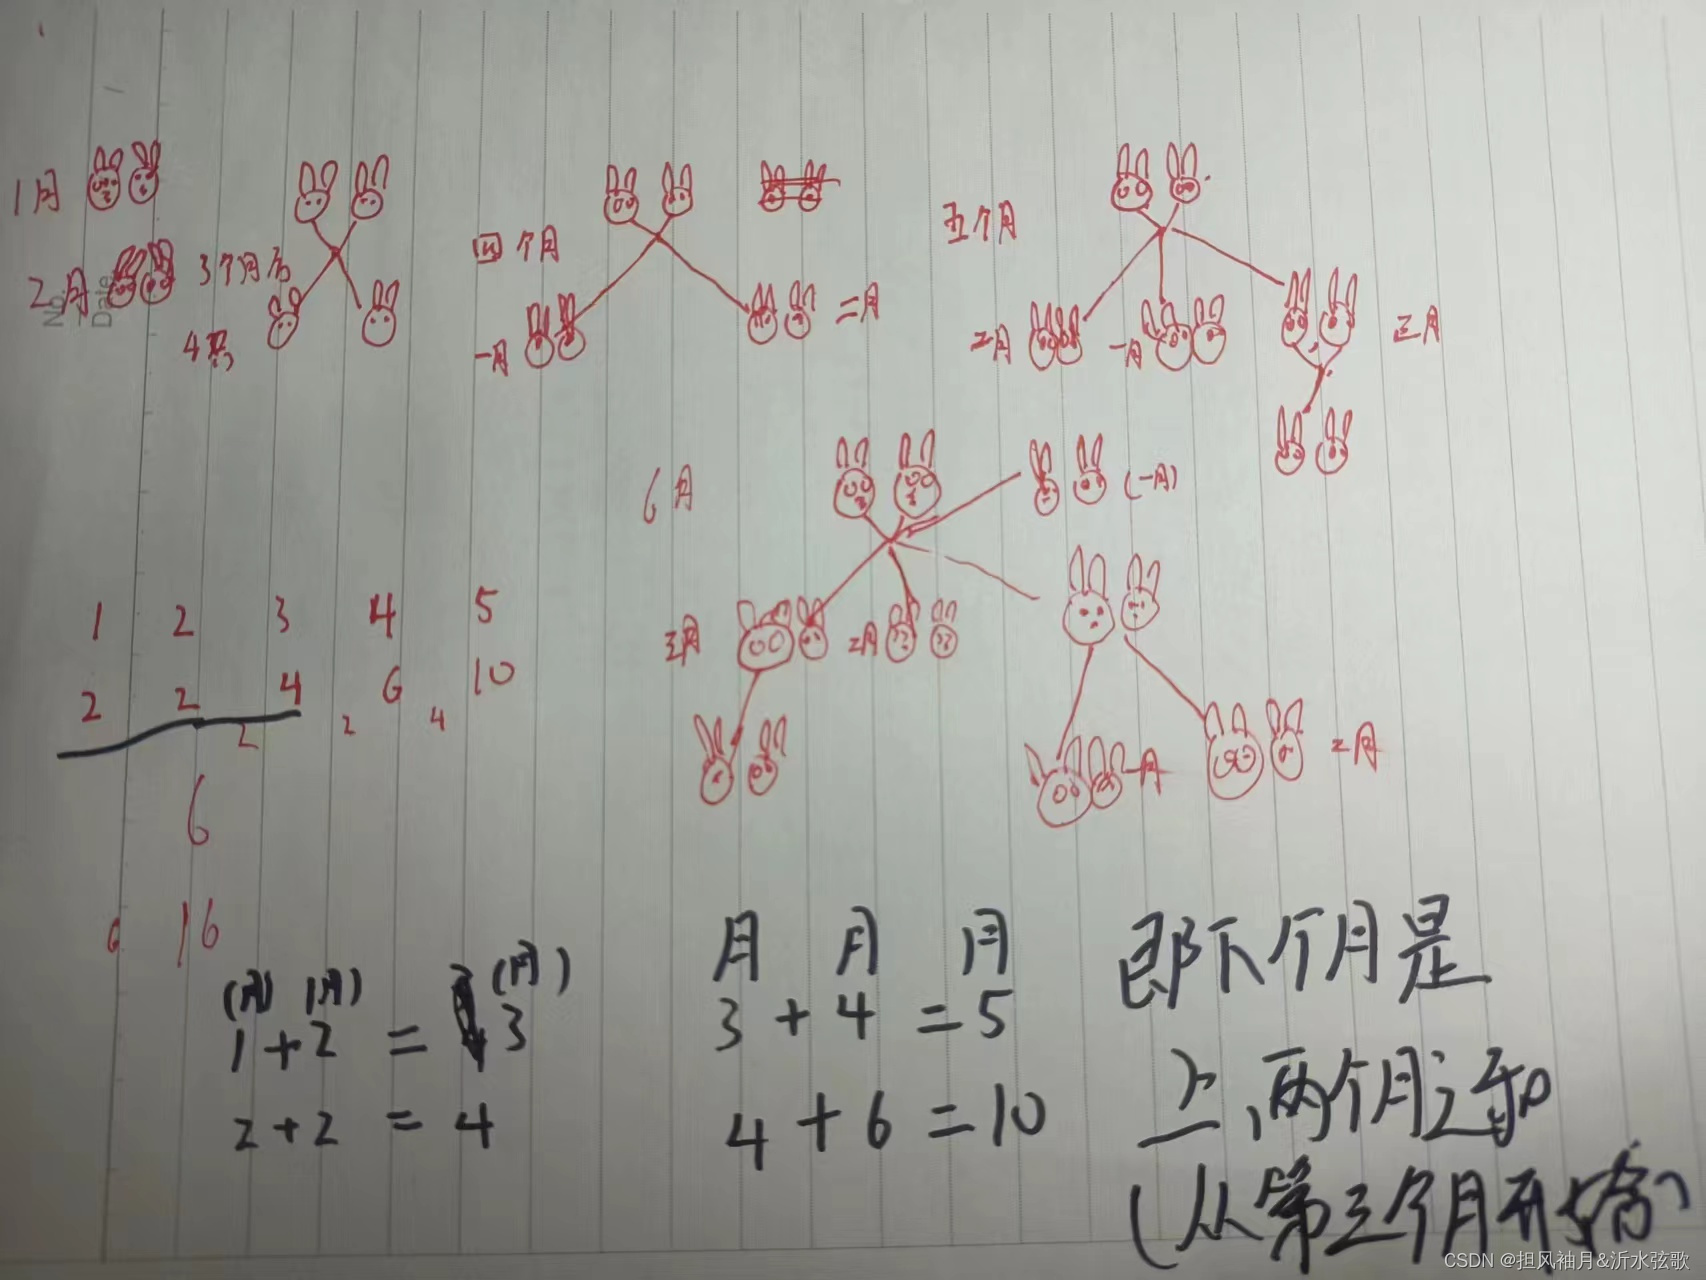 1月
2月
No.
Date
3个月后
4只
四个月
一月
二月
五个月
二月
一月
三月
6月
(一月)
三月
二月
一月
二月
1 2 3 4 5
2 2 4 6 10
2 2 4
6
6 16
(月) (月) (月)
1+2 = 3
2+2 = 4
月 月 月
3 + 4 = 5
4 + 6 = 10
即下个月是
上两个月之和
(从第三个月开始)
CSDN @担风袖月&沂水弦歌